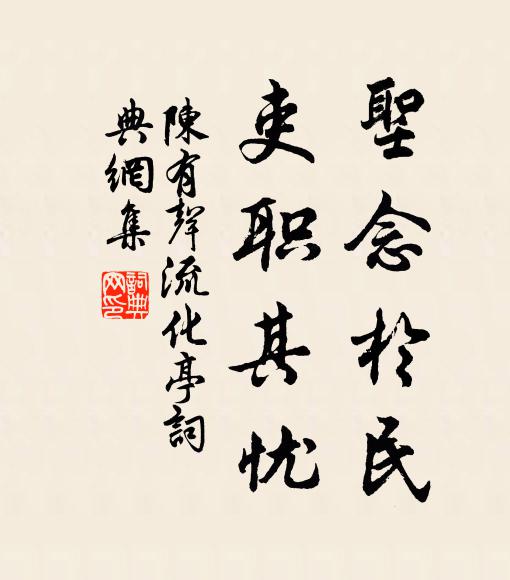 聖念於民
吏职其忧
陳有聲流化亭詞
典網集
詞典
网印